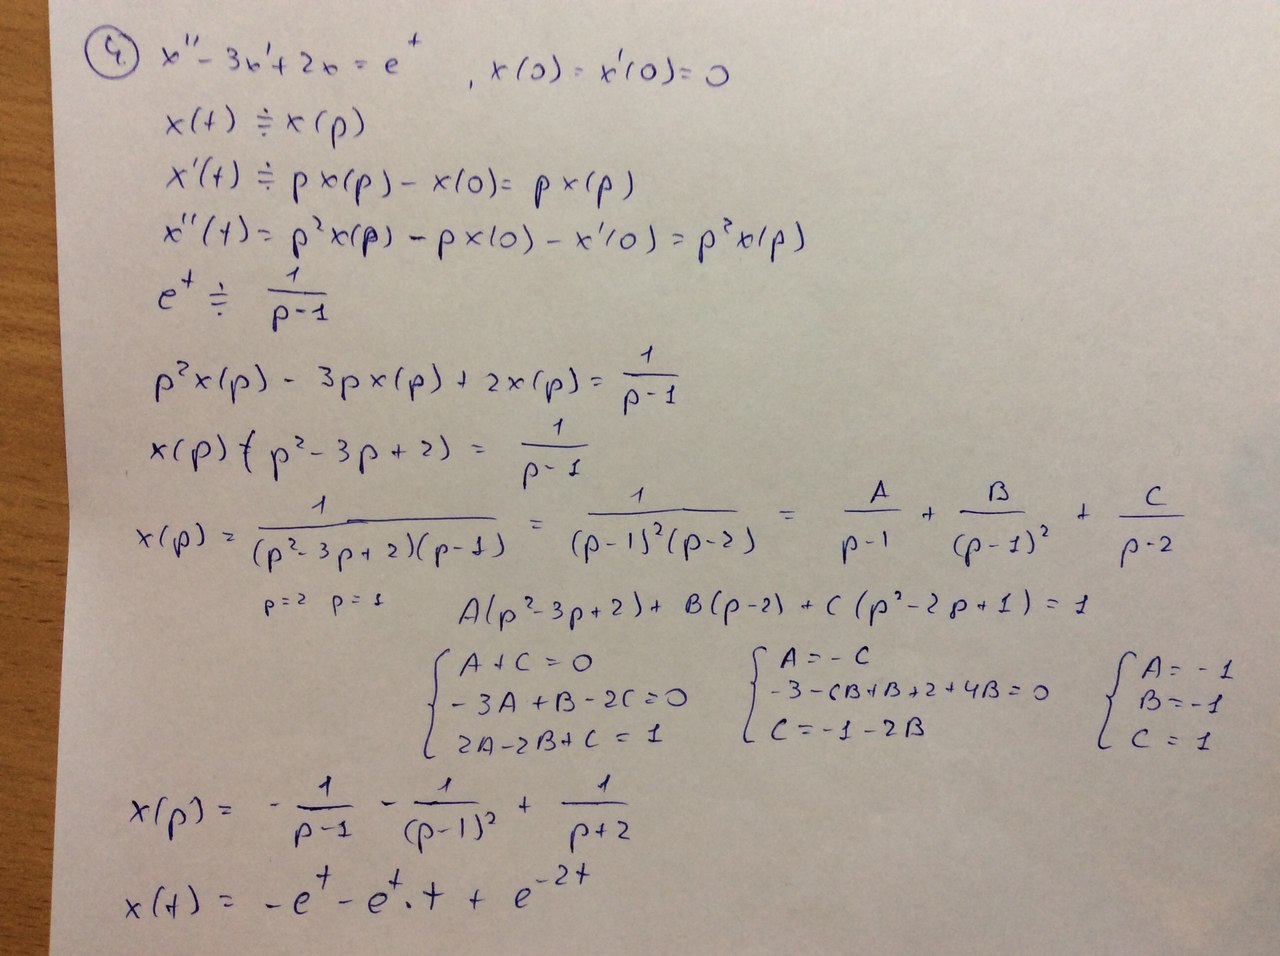 4. x'' - 3x' + 2x = e^t , x(0) = x'(0) = 0
x(t) ≑ x(p)
x'(t) ≑ px(p) - x(0) = px(p)
x''(t) = p²x(p) - px(0) - x'(0) = p²x(p)
e^t ≑ 1/(p-1)
p²x(p) - 3px(p) + 2x(p) = 1/(p-1)
x(p) (p² - 3p + 2) = 1/(p-1)
x(p) = 1/((p² - 3p + 2)(p-1)) = 1/((p-1)²(p-2)) = A/(p-1) + B/(p-1)² + C/(p-2)
p=2 p=1 A(p²-3p+2) + B(p-2) + C(p²-2p+1) = 1
{ A + C = 0 { A = -C { A = -1
-3A + B - 2C = 0 B = -1
2A - 2B + C = 1 C = -1 - 2B C = 1
x(p) = - 1/(p-1) - 1/(p-1)² + 1/(p+2)
x(t) = -e^t - e^t · t + e^(-2t)